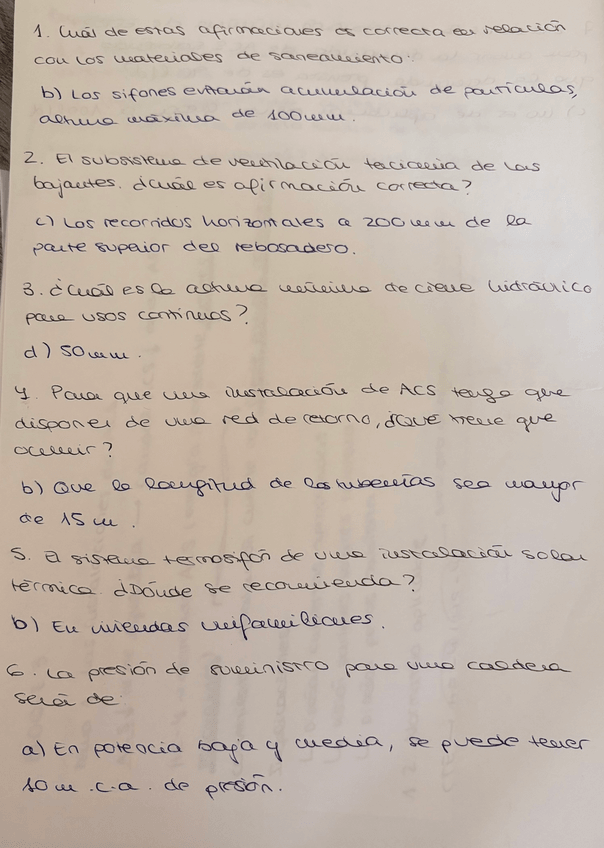 1. Cuál de estas afirmaciones es correcta en relación
con los materiales de saneamiento:
b) Los sifones evitarán acumulación de partículas,
altura máxima de 100mm.
2. El subsistema de ventilación terciaria de las
bajantes. ¿Cuál es afirmación correcta?
c) Los recorridos horizontales a 200mm de la
parte superior del rebosadero.
3. ¿Cuál es la altura mínima de cierre hidráulico
para usos continuos?
d) 50mm.
4. Para que una instalación de ACS tenga que
disponer de una red de retorno, ¿Qué tiene que
ocurrir?
b) Que la longitud de las tuberías sea mayor
de 15 m.
5. El sistema termosifón de una instalación solar
térmica. ¿Dónde se recomienda?
b) En viviendas unifamiliares.
6. La presión de suministro para una caldera
será de:
a) En potencia baja y media, se puede tener
10 m.c.a. de presión.